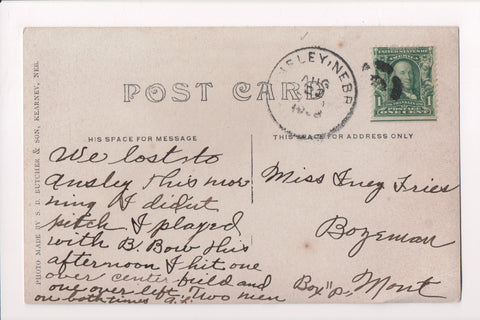 POST CARD
ANSLEY, NEBR.
AUG
UNITED STATES OF AMERICA
1
ONE CENT
HIS SPACE FOR MESSAGE
THIS SPACE FOR ADDRESS ONLY
PHOTO MADE BY S. D. BUTCHER & SON, KEARNEY, NEB.
We lost to
Ansley this mor
ning I didnt
pitch I played
with B. Bow this
afternoon I hit one
over center field and
one over left Two men
on both times
Miss Iney Fries
Bozeman
Box "D" Mont